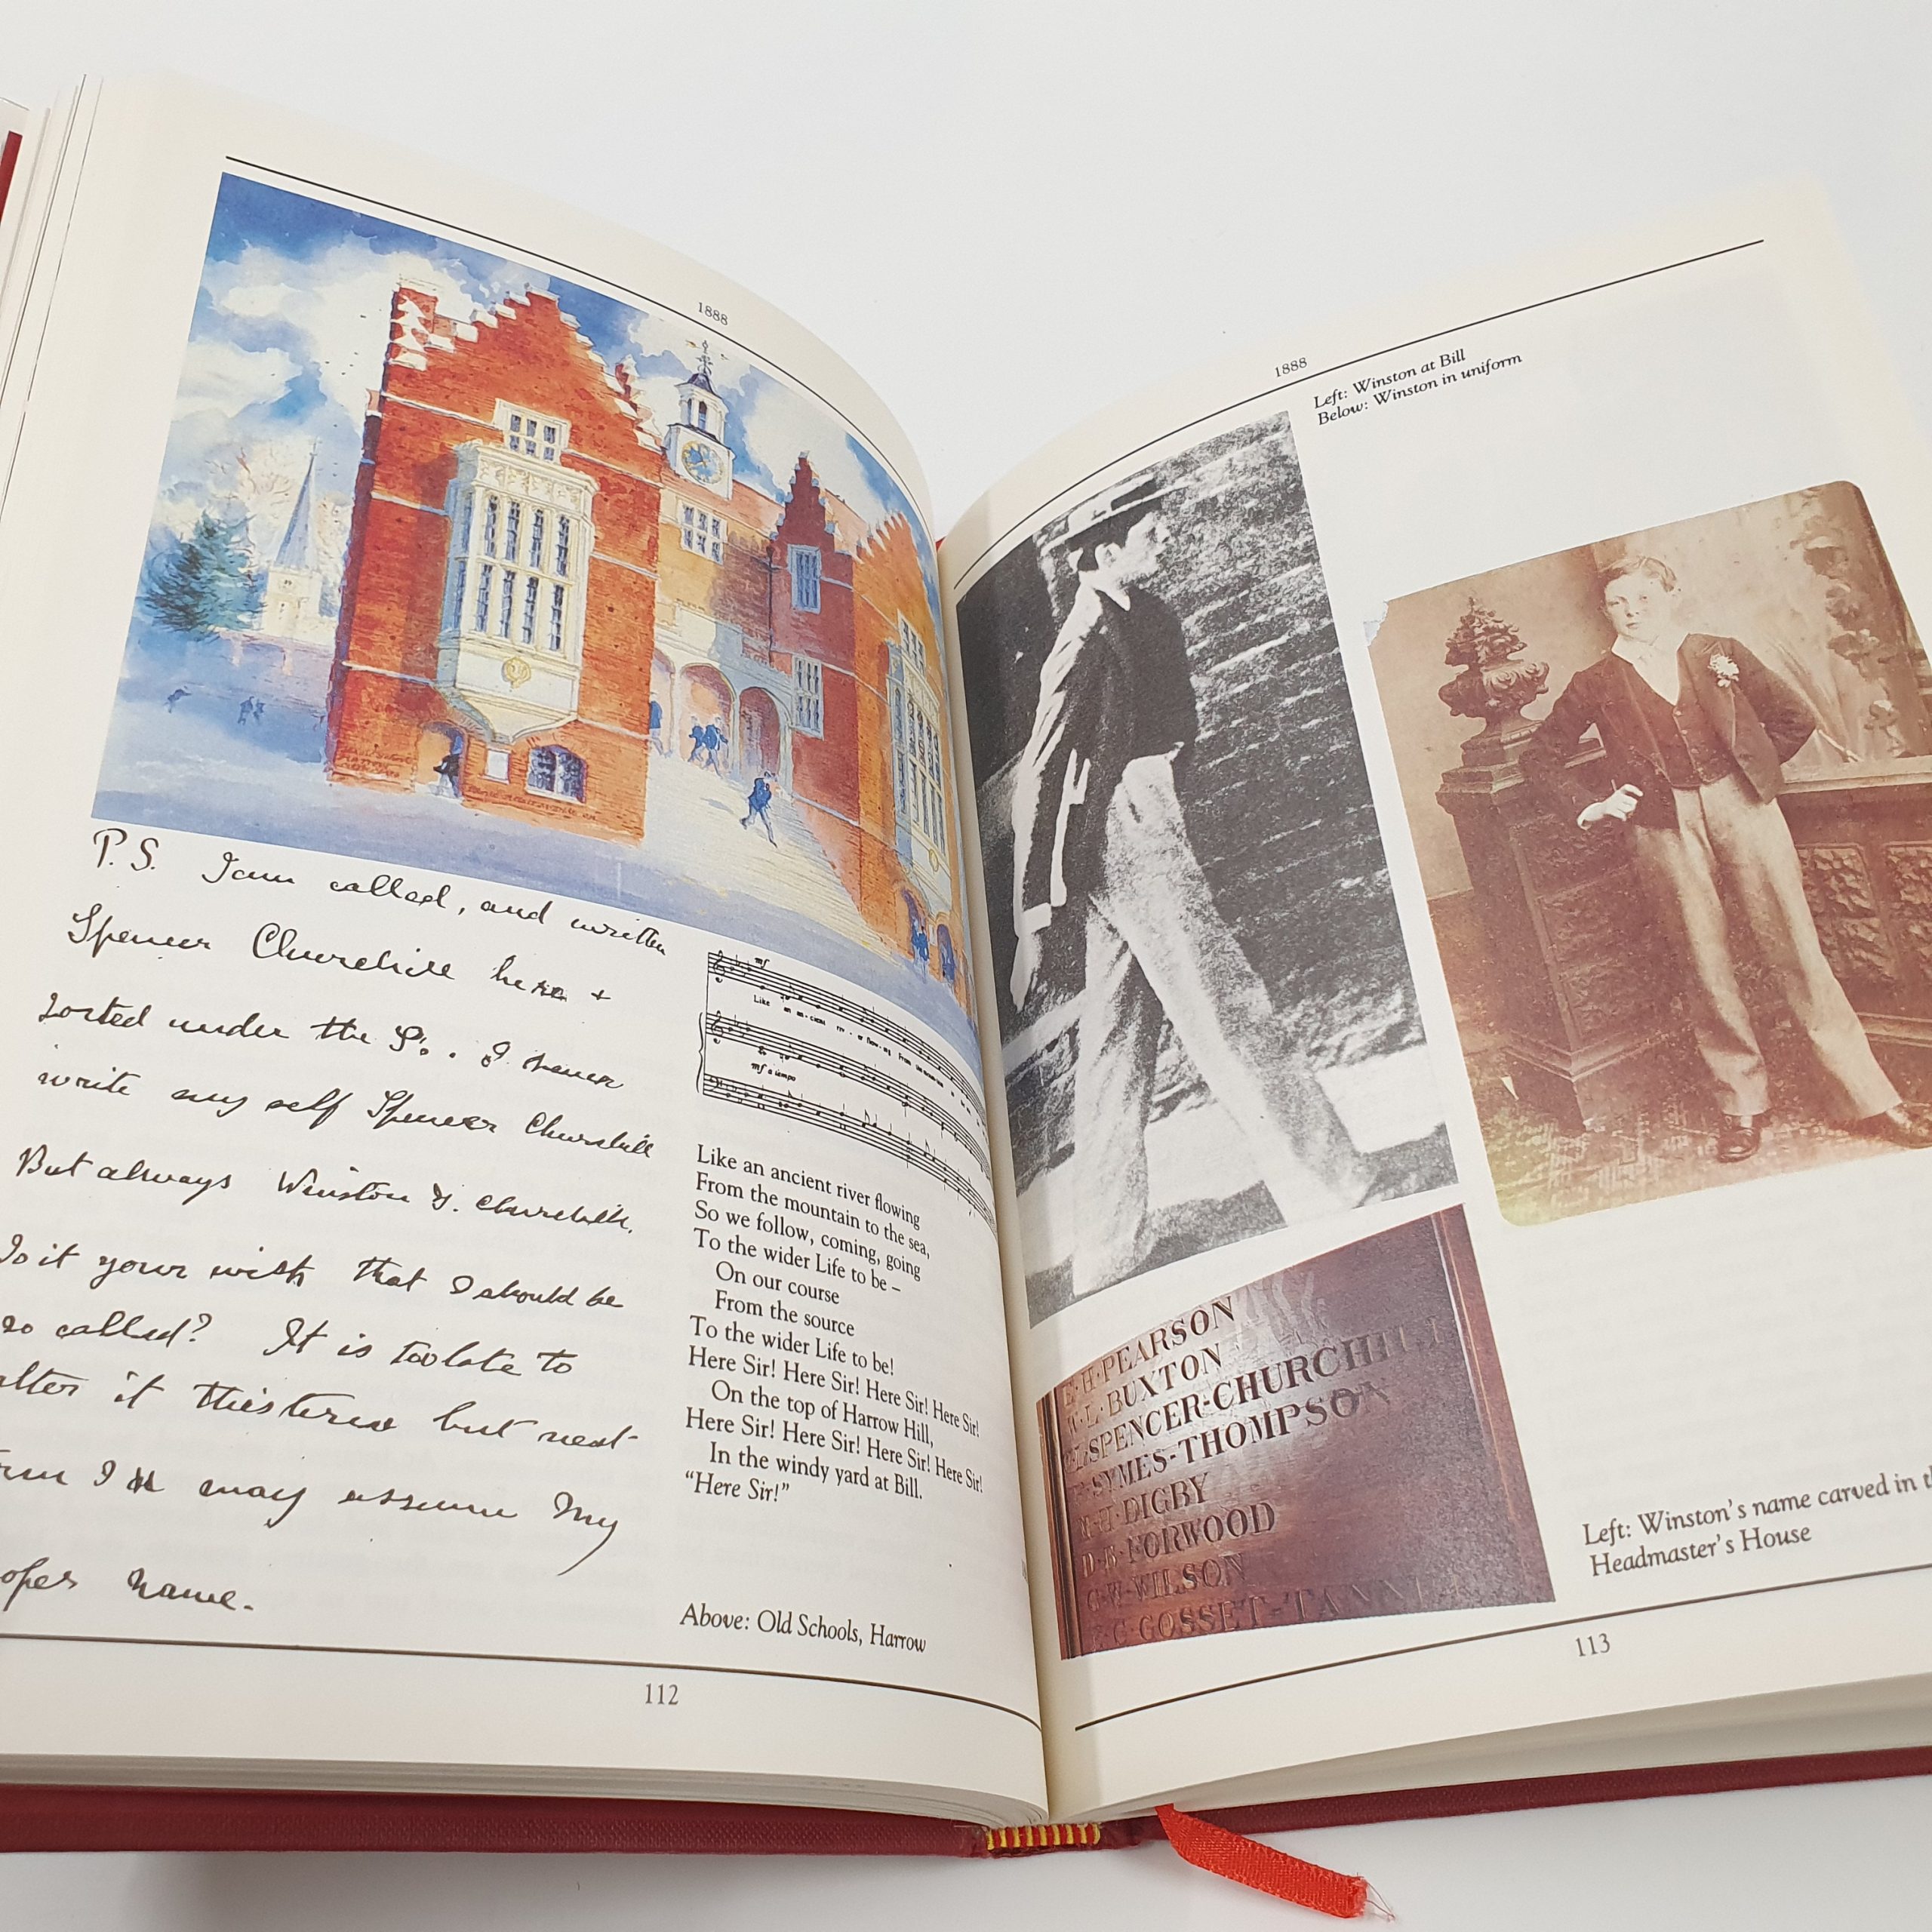 1888
P.S. I am called, and written
Spencer Churchill here +
sorted under the S. . I never
write my self Spencer Churchill
But always Winston S. Churchill.
Is it your wish that I should be
so called? It is too late to
alter it this term but next
I may assume My
name.
mf
Like
mf a tempo
Like an ancient river flowing
From the mountain to the sea,
So we follow, coming, going
To the wider Life to be –
On our course
From the source
To the wider Life to be!
Here Sir! Here Sir! Here Sir! Here Sir!
On the top of Harrow Hill,
Here Sir! Here Sir! Here Sir! Here Sir!
In the windy yard at Bill.
“Here Sir!”
Above: Old Schools, Harrow
112
1888
Left: Winston at Bill
Below: Winston in uniform
E·H·PEARSON
W·L·BUXTON
SPENCER-CHURCHILL
SYMES-THOMPSON
H·DIGBY
D·B·FORWOOD
G·W·WILSON
C·GOSSET-TANN
Left: Winston's name carved in
Headmaster's House
113